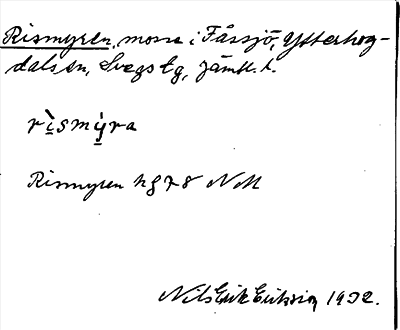 Rismyren, mosse i Fåssjö, Ytterhog-
dalsen, Svegs tg, Jämtl. l.
rìsmỳra
Rismyren hg 78 NM
Nils Erik Eriksson 1932.